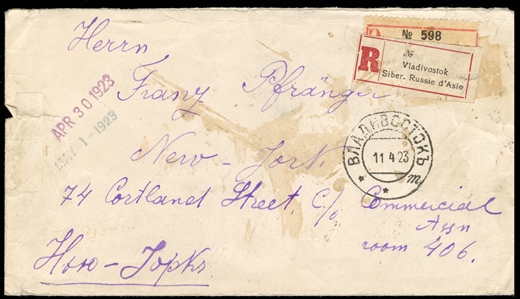 Herrn
Franz Pfränger
New-York
74 Cortland Street, C/o Commercial
Assn
room 406.
Нью-Іоркъ
APR 30 1923
MAY 1-1923
№ 598
R
№
Vladivostok
Siber. Russie d'Asie
ВЛАДИВОСТОКЪ
11 4 23
m